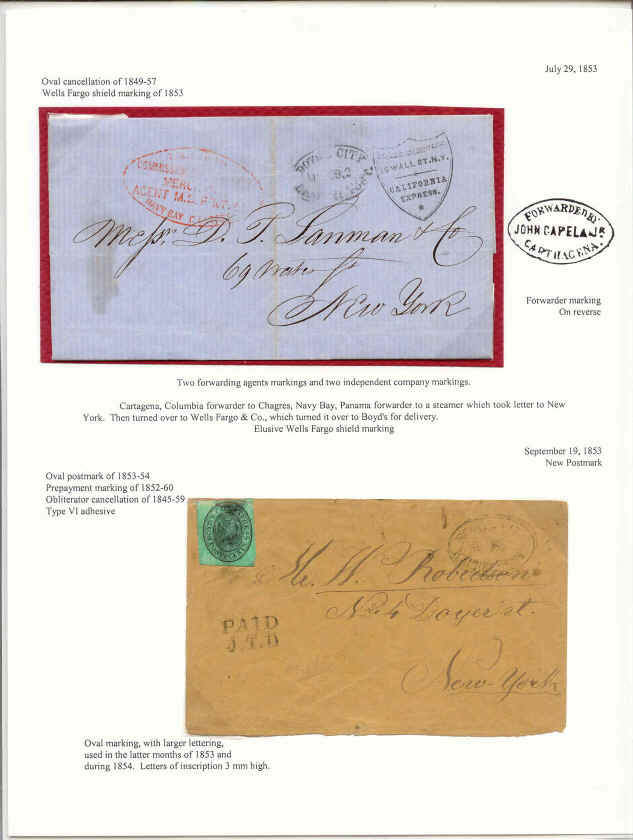 July 29, 1853
Oval cancellation of 1849-57
Wells Fargo shield marking of 1853
AGENT M.S.
NAVY BAY
BOYD'S CITY
WALL ST. N.Y.
CALIFORNIA
EXPRESS.
Messrs. D. T. Lanman & Co
69 Water St
New York
FORWARDED BY
JOHN CAPELA JR
CARTHAGENA.
Forwarder marking
On reverse
Two forwarding agents markings and two independent company markings.
Cartagena, Columbia forwarder to Chagres, Navy Bay, Panama forwarder to a steamer which took letter to New
York. Then turned over to Wells Fargo & Co., which turned it over to Boyd's for delivery.
Elusive Wells Fargo shield marking
September 19, 1853
New Postmark
Oval postmark of 1853-54
Prepayment marking of 1852-60
Obliterator cancellation of 1845-59
Type VI adhesive
W. Robertson
No 4 Doyer st.
New-York
PAID
J.T.B
Oval marking, with larger lettering,
used in the latter months of 1853 and
during 1854. Letters of inscription 3 mm high.